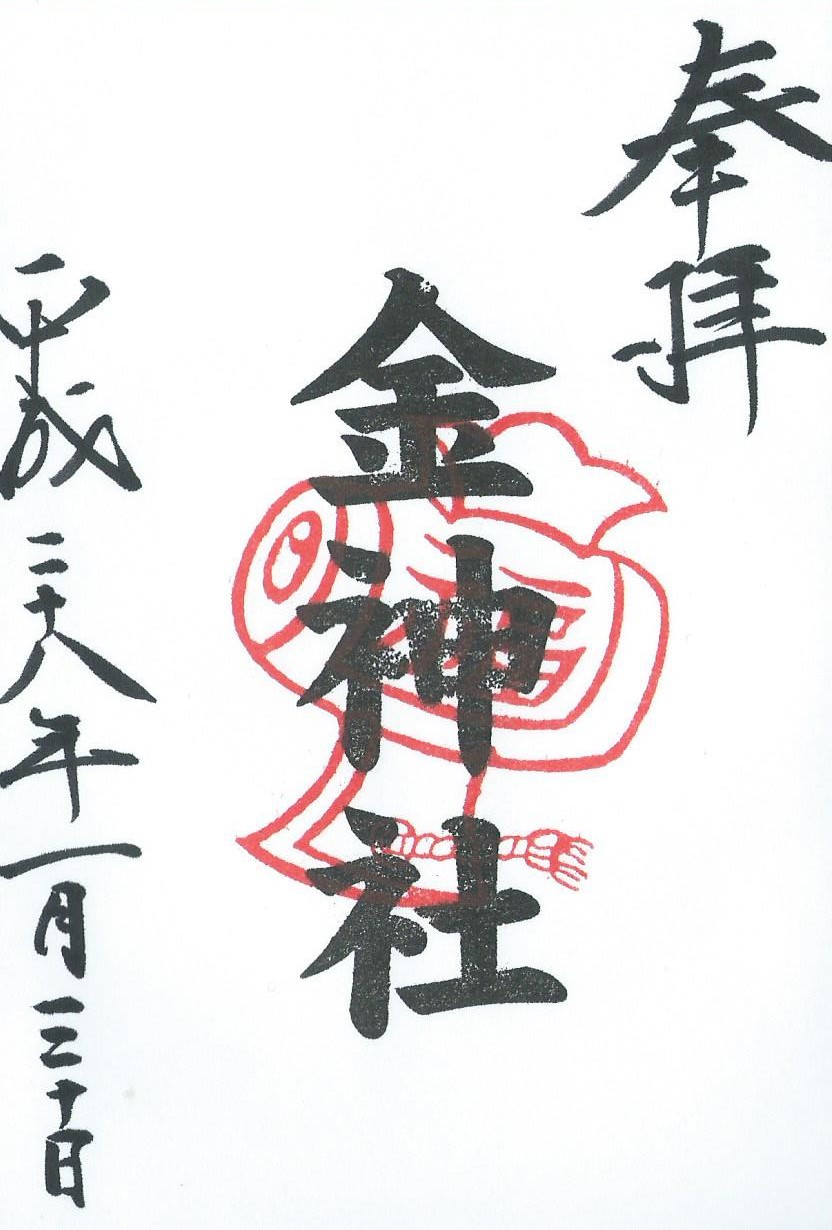 奉拝
金神社
平成二十八年一月三十日